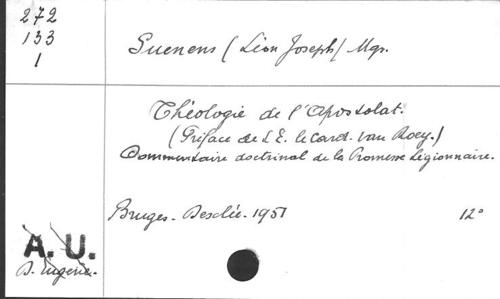 272
133
1
Suenens (Léon Joseph) Mgr.
Théologie de l'Apostolat.
(Préface de S.E. le Card. van Roey.)
Commentaire doctrinal de la Promesse Légionnaire.
Bruges - Desclée - 1951
12°
A. U.